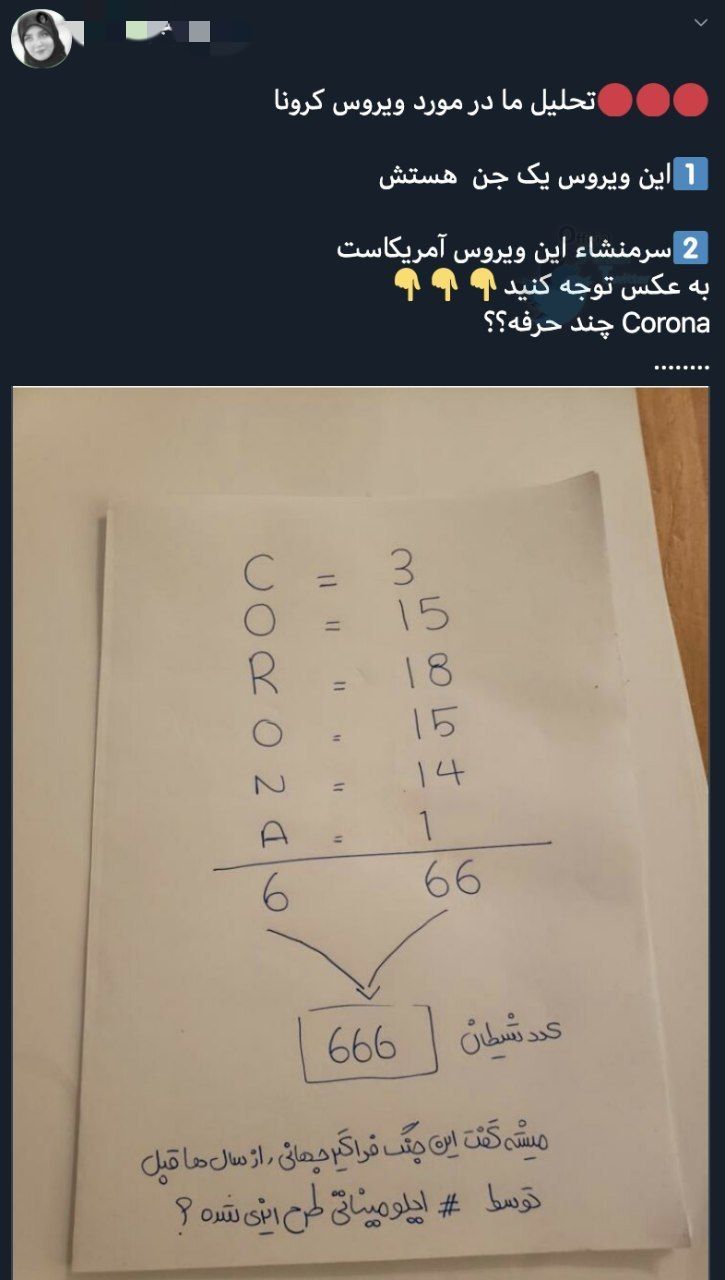 🔴🔴🔴تحلیل ما در مورد ویروس کرونا
1️⃣این ویروس یک جن هستش
2️⃣سرمنشاء این ویروس آمریکاست
به عکس توجه کنید👇👇👇
Corona چند حرفه؟؟
........
C = 3
O = 15
R = 18
O = 15
N = 14
A = 1
6 66
666 عدد شیطان
میشه گفت این جنگ فراگیر جهانی، از سال ها قبل
توسط # ایلومیناتی طرح ریزی شده ؟